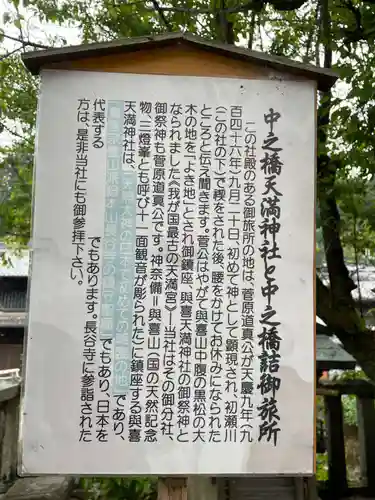 中之橋天満神社と中之橋詰御旅所
この社殿のある御旅所の地は、菅原道真公が天慶九年(九
百四十六年)九月二十日、初めて神として顕現され、初瀬川
(この社の下)で禊をされた後、腰をかけてお休みになられた
ところと伝え聞きます。菅公はやがて與喜山中腹の黒松の大
木の地を「よき地」とされ御鎮座、與喜天満神社の御祭神と
なられました《我が国最古の天満宮》―当社はその御分社、
御祭神も菅原道真公です。神奈備=與喜山(国の天然記念
物、三燈峯とも呼び十一面観音が彫られた)に鎮座する與喜
天満神社は、
であり、
でもあり、日本を
代表する
でもあります。長谷寺に参詣された
方は、是非当社にも御参拝下さい。